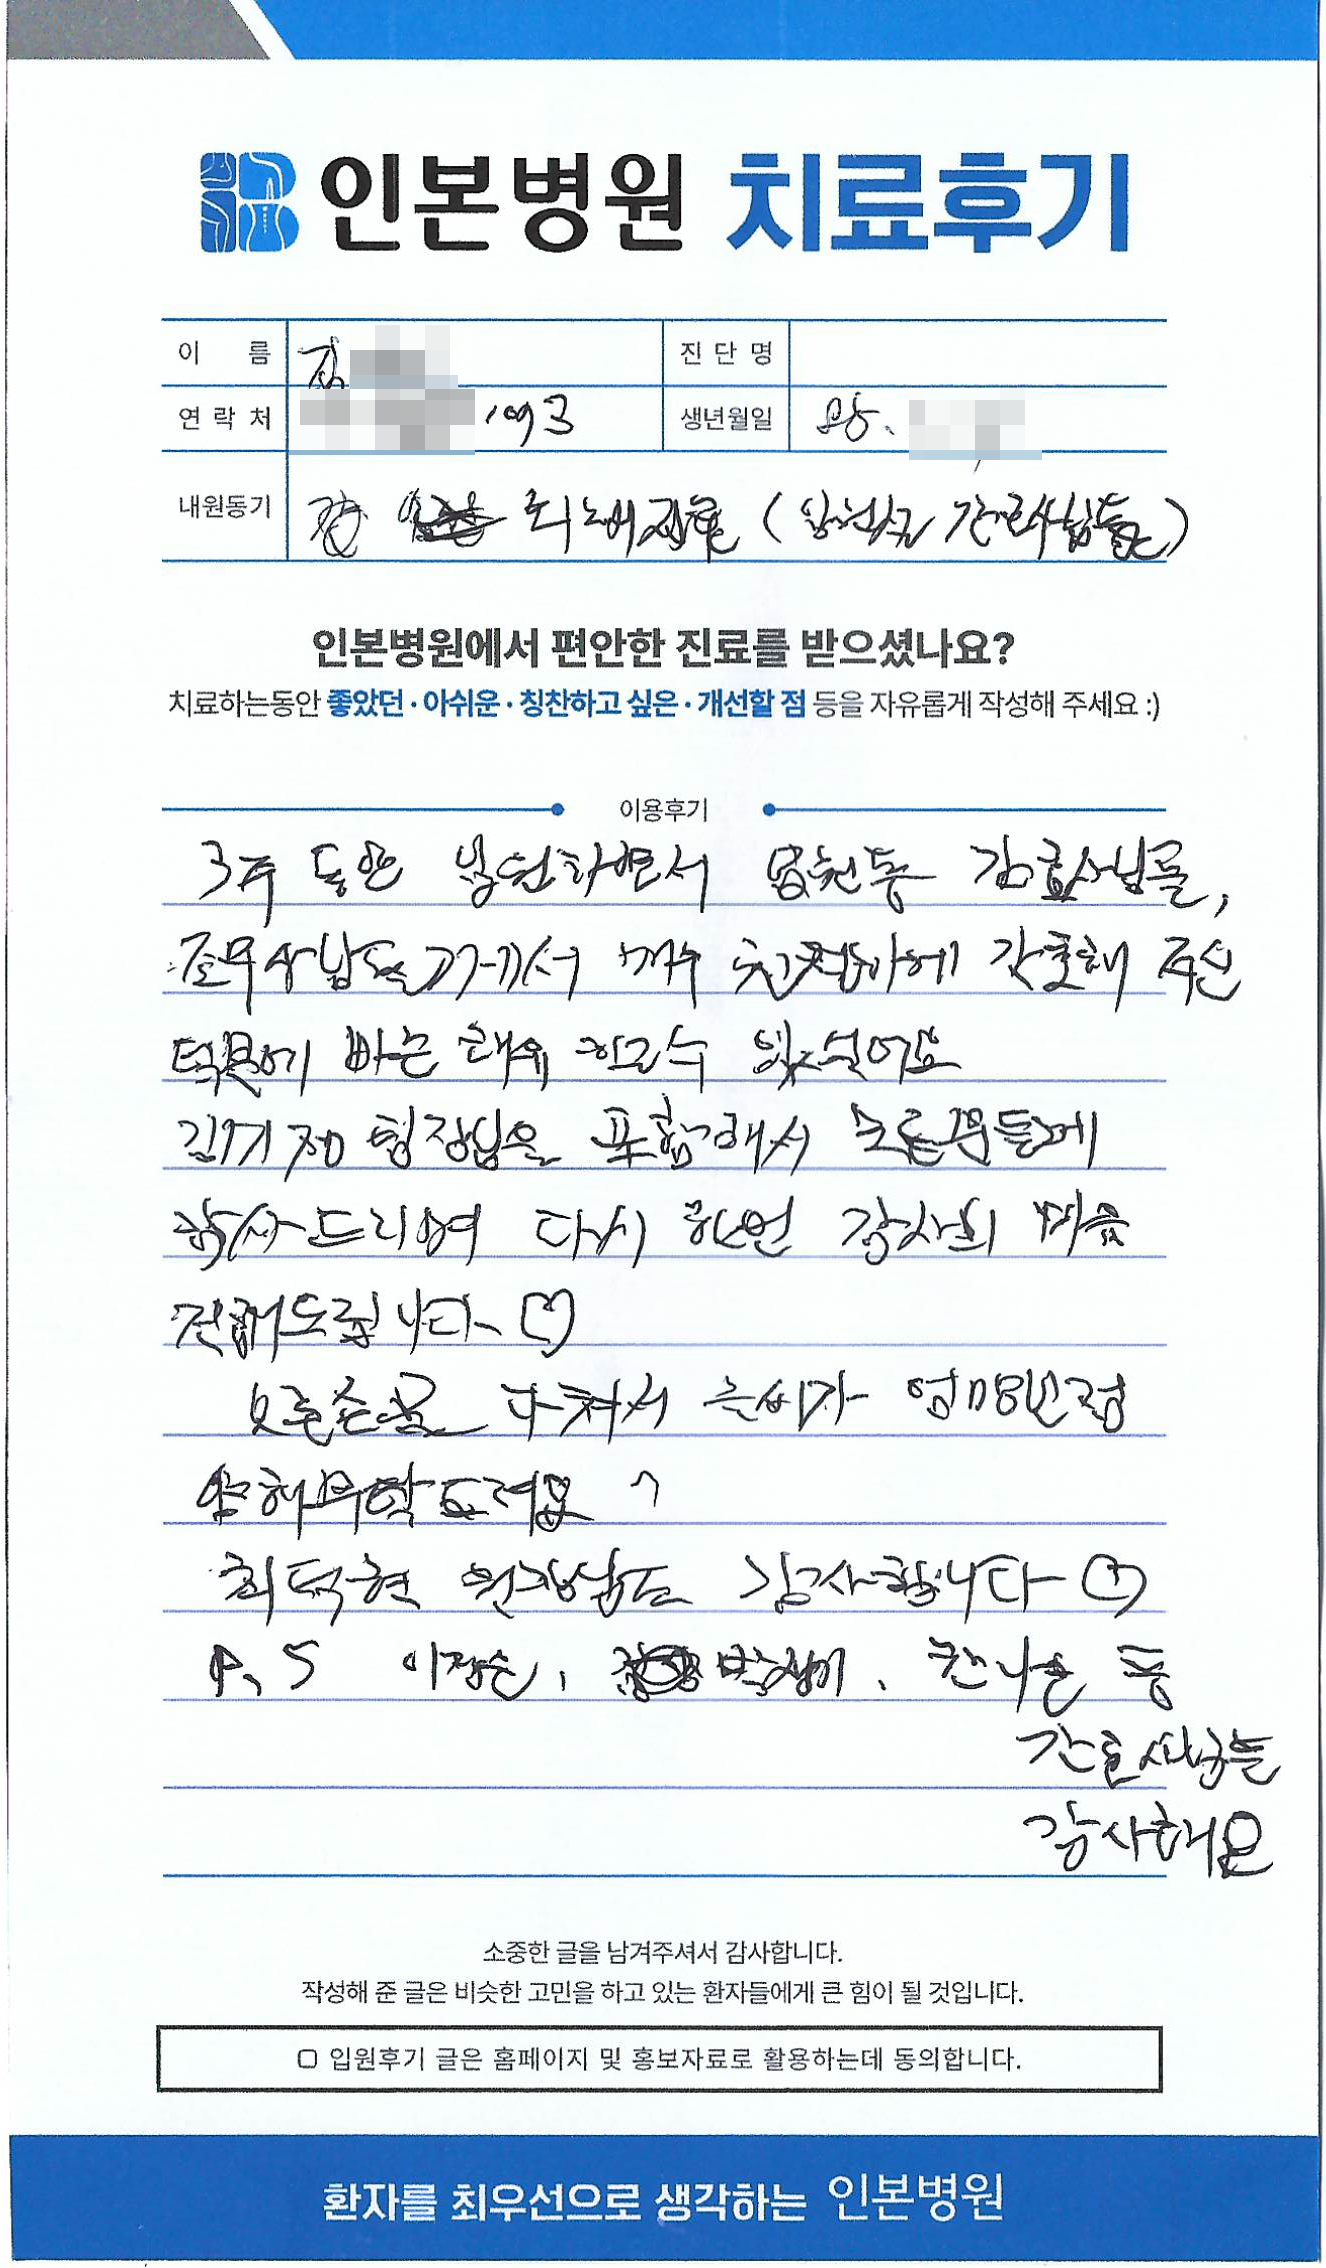 인본병원 치료후기
이 름 김
진 단 명
연 락 처 1093
생년월일 양.
내원동기
인본병원에서 편안한 진료를 받으셨나요?
치료하는동안 좋았던 · 아쉬운 · 칭찬하고 싶은 · 개선할 점 등을 자유롭게 작성해 주세요 :)
이용후기
3주 동안 입원하면서 병동 간호사님들,
조무사님들께서 매우 친절하게 간호해 주신
덕분에 빠른 쾌유 할 수 있었어요
팀장님을 포함해서 모든 분들께
감사드리며 다시 한번 감사의 마음
전해드립니다 ♡
오른손을 다쳐서 글씨가 엉망인점
양해부탁드려요 ^
최덕현 원장님도 감사합니다 ♡
P.S 이정은, 한나은 등
간호사님들
감사해요
소중한 글을 남겨주셔서 감사합니다.
작성해 준 글은 비슷한 고민을 하고 있는 환자들에게 큰 힘이 될 것입니다.
□ 입원후기 글은 홈페이지 및 홍보자료로 활용하는데 동의합니다.
환자를 최우선으로 생각하는 인본병원